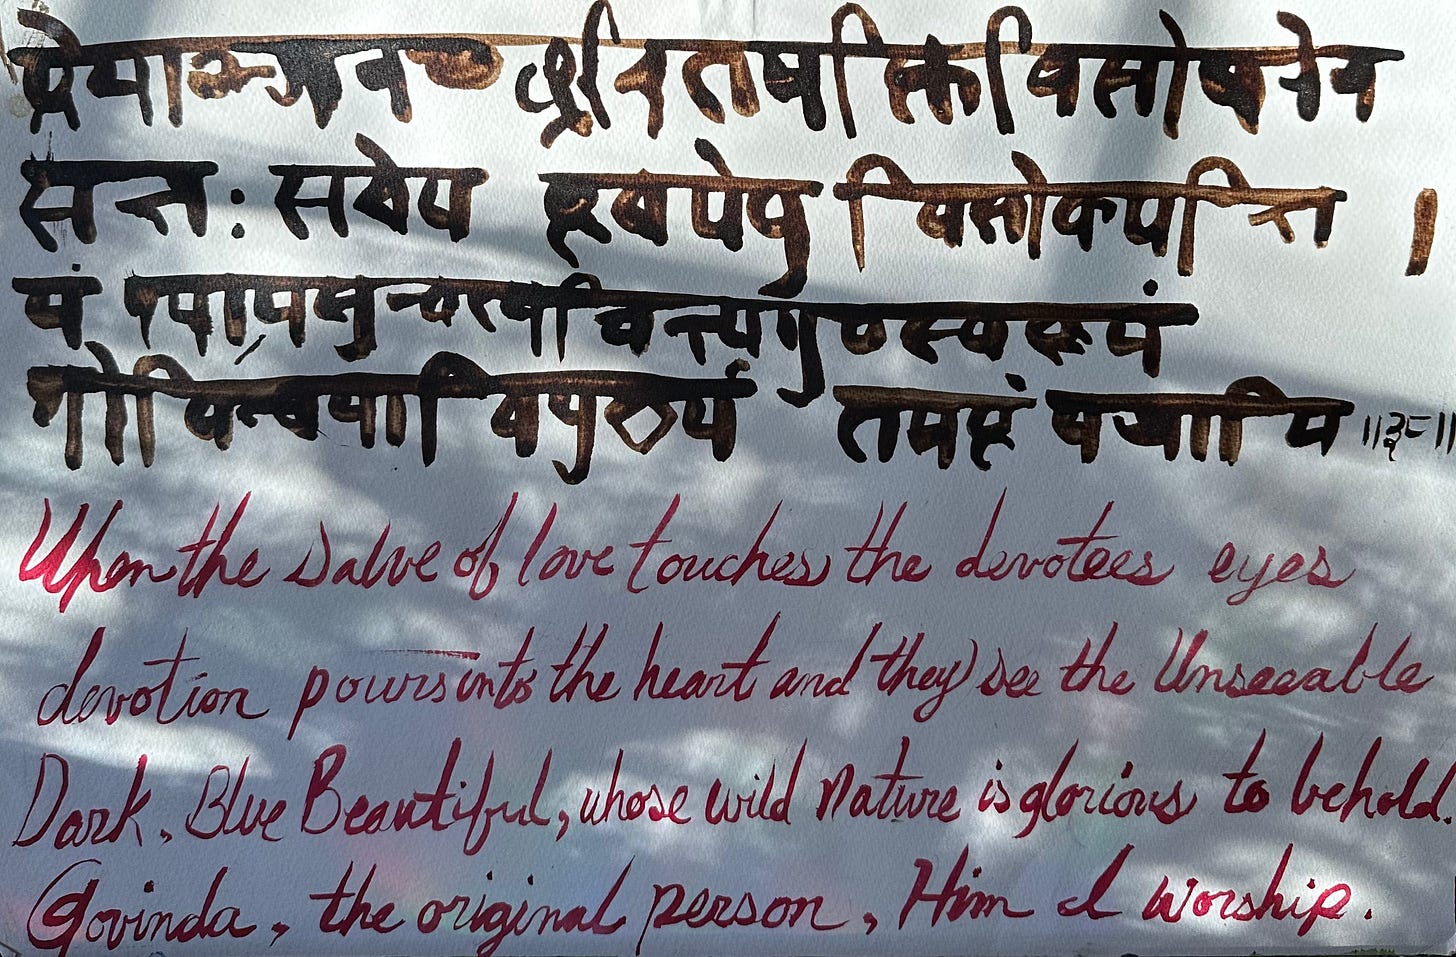 प्रेमाञ्जनच्छुरितभक्तिविलोचनेन
सन्तः सदैव हृदयेषु विलोकयन्ति ।
यं श्यामसुन्दरमचिन्त्यगुणस्वरूपं
गोविन्दमादिपुरुषं तमहं भजामि ॥३८॥
When the salve of love touches the devotees eyes
devotion pours into the heart and they see the Unseeable
Dark, Blue Beautiful, whose wild nature is glorious to behold.
Govinda, the original person, Him I worship.